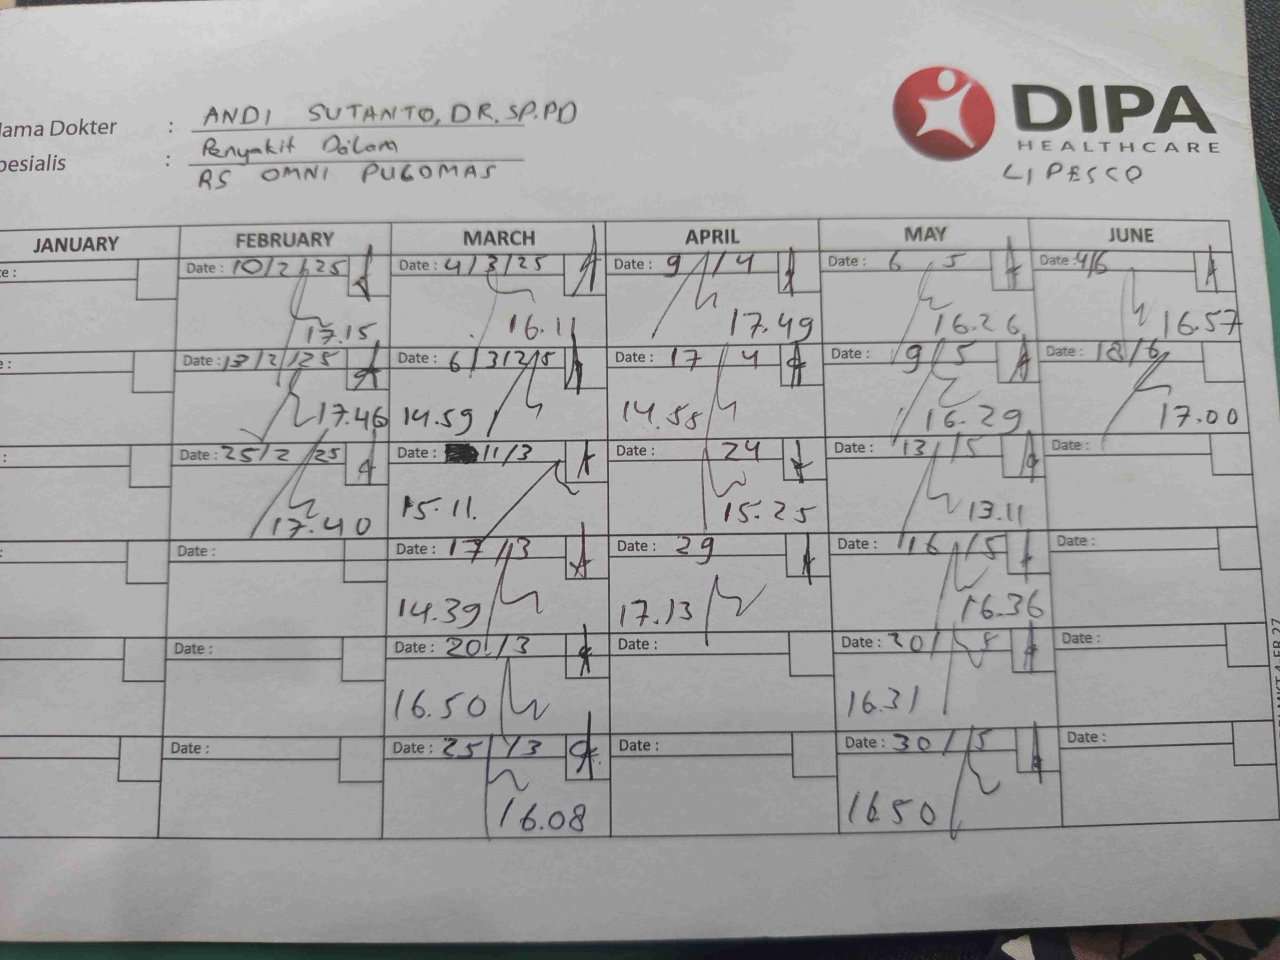 Nama Dokter : ANDI SUTANTO, DR, SP.PD
pesialis : Penyakit Dalam
RS OMNI PUGOMAS
DIPA
HEALTHCARE
LIPESCO
JANUARY FEBRUARY MARCH APRIL MAY JUNE
Date : 10/2/25 Date : 4/3/25 Date : 9/4 Date : 6 5 Date : 4/6
17.15 16.11 17.49 16.26 16.57
Date : 13/2/25 Date : 6/3/25 Date : 17 4 Date : 9/5 Date : 18/6
17.46 14.59 14.58 16.29 17.00
Date : 25/2/25 Date : 11/3 Date : 24 Date : 13/5 Date :
17.40 15.11. 15.25 13.11
Date : Date : 17/3 Date : 29 Date : 16/5 Date :
14.39 17.13 16.36
Date : Date : 20/3 Date : Date : 20/ Date :
16.50 16.31
Date : Date : 25/3 Date : Date : 30/5 Date :
16.08 16.50